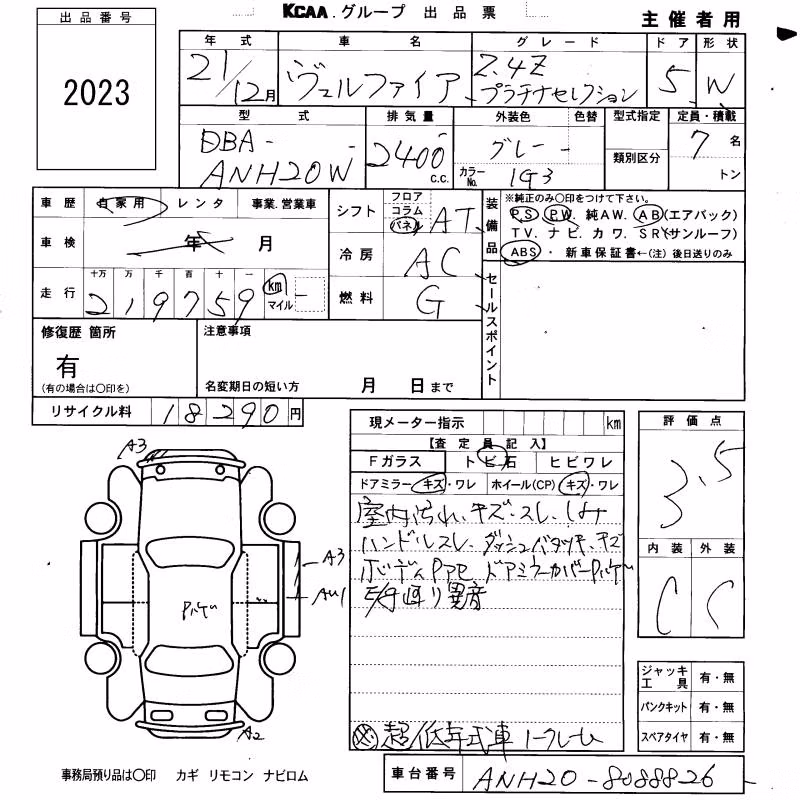 KCAA.グループ 出品票
主催者用
出品番号
2023
年式 車名 グレード ドア 形状
21/12月 ヴェルファイア 2.4Z プラチナセレクション 5 W
型式 排気量 外装色 色替 型式指定 定員・積載
DBA- ANH20W 2400 c.c. グレー 類別区分 7名
カラーNo. 1G3 トン
車歴 自家用 レンタ 事業.営業車
シフト フロア コラム パネル AT
装備品 ※純正のみ〇印をつけて下さい。
PS PW 純AW. AB(エアバック)
TV. ナビ カワ. SR(サンルーフ)
ABS・ 新車保証書←(注)後日送りのみ
車検 年 月
冷房 AC
走行 十万 万 千 百 十 一
219759 km マイル
燃料 G
セールスポイント
修復歴 箇所 注意事項
有
(有の場合は〇印を) 名変期日の短い方 月 日まで
リサイクル料 18290円
現メーター指示 km
【査定員記入】
Fガラス トビ石 ヒビワレ
ドアミラー キズ・ワレ ホイール(CP) キズ・ワレ
室内汚れ、キズ・スレ、シミ
ハンドルスレ、ダッシュバタツキ、キズ
ボディ
ドアミラーカバー
回り異音
超低年式車 1-フレーム
評価点
3.5
内装 外装
C C
ジャッキ工具 有・無
パンクキット 有・無
スペアタイヤ 有・無
A3
A3
A2
事務局預り品は〇印 カギ リモコン ナビロム
車台番号 ANH20-8088826